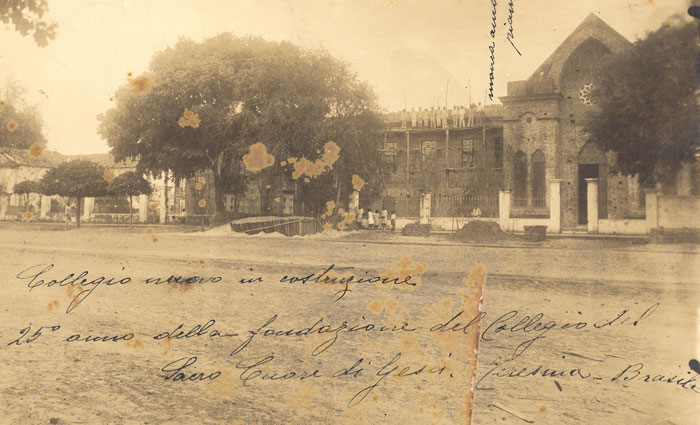 Collegio nuovo in costruzione
25° anno della fondazione del Collegio del
Sacro Cuore di Gesù. Teresina - Brasile